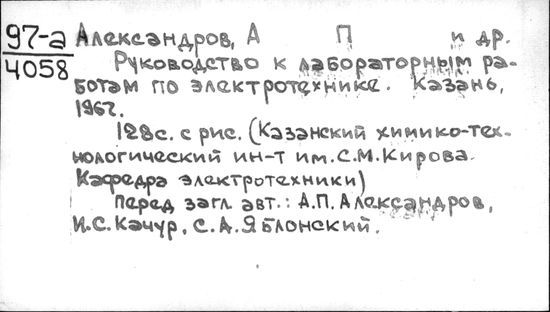 97-а Александров, А П и др.
4058 Руководство к лабораторным ра-
ботам по электротехнике. Казань,
1967.
128с. с рис. (Казанский химико-тех-
нологический ин-т им. С.М. Кирова.
Кафедра электротехники)
Перед загл. авт.: А.П. Александров,
И.С. Качур, С.А. Яблонский.